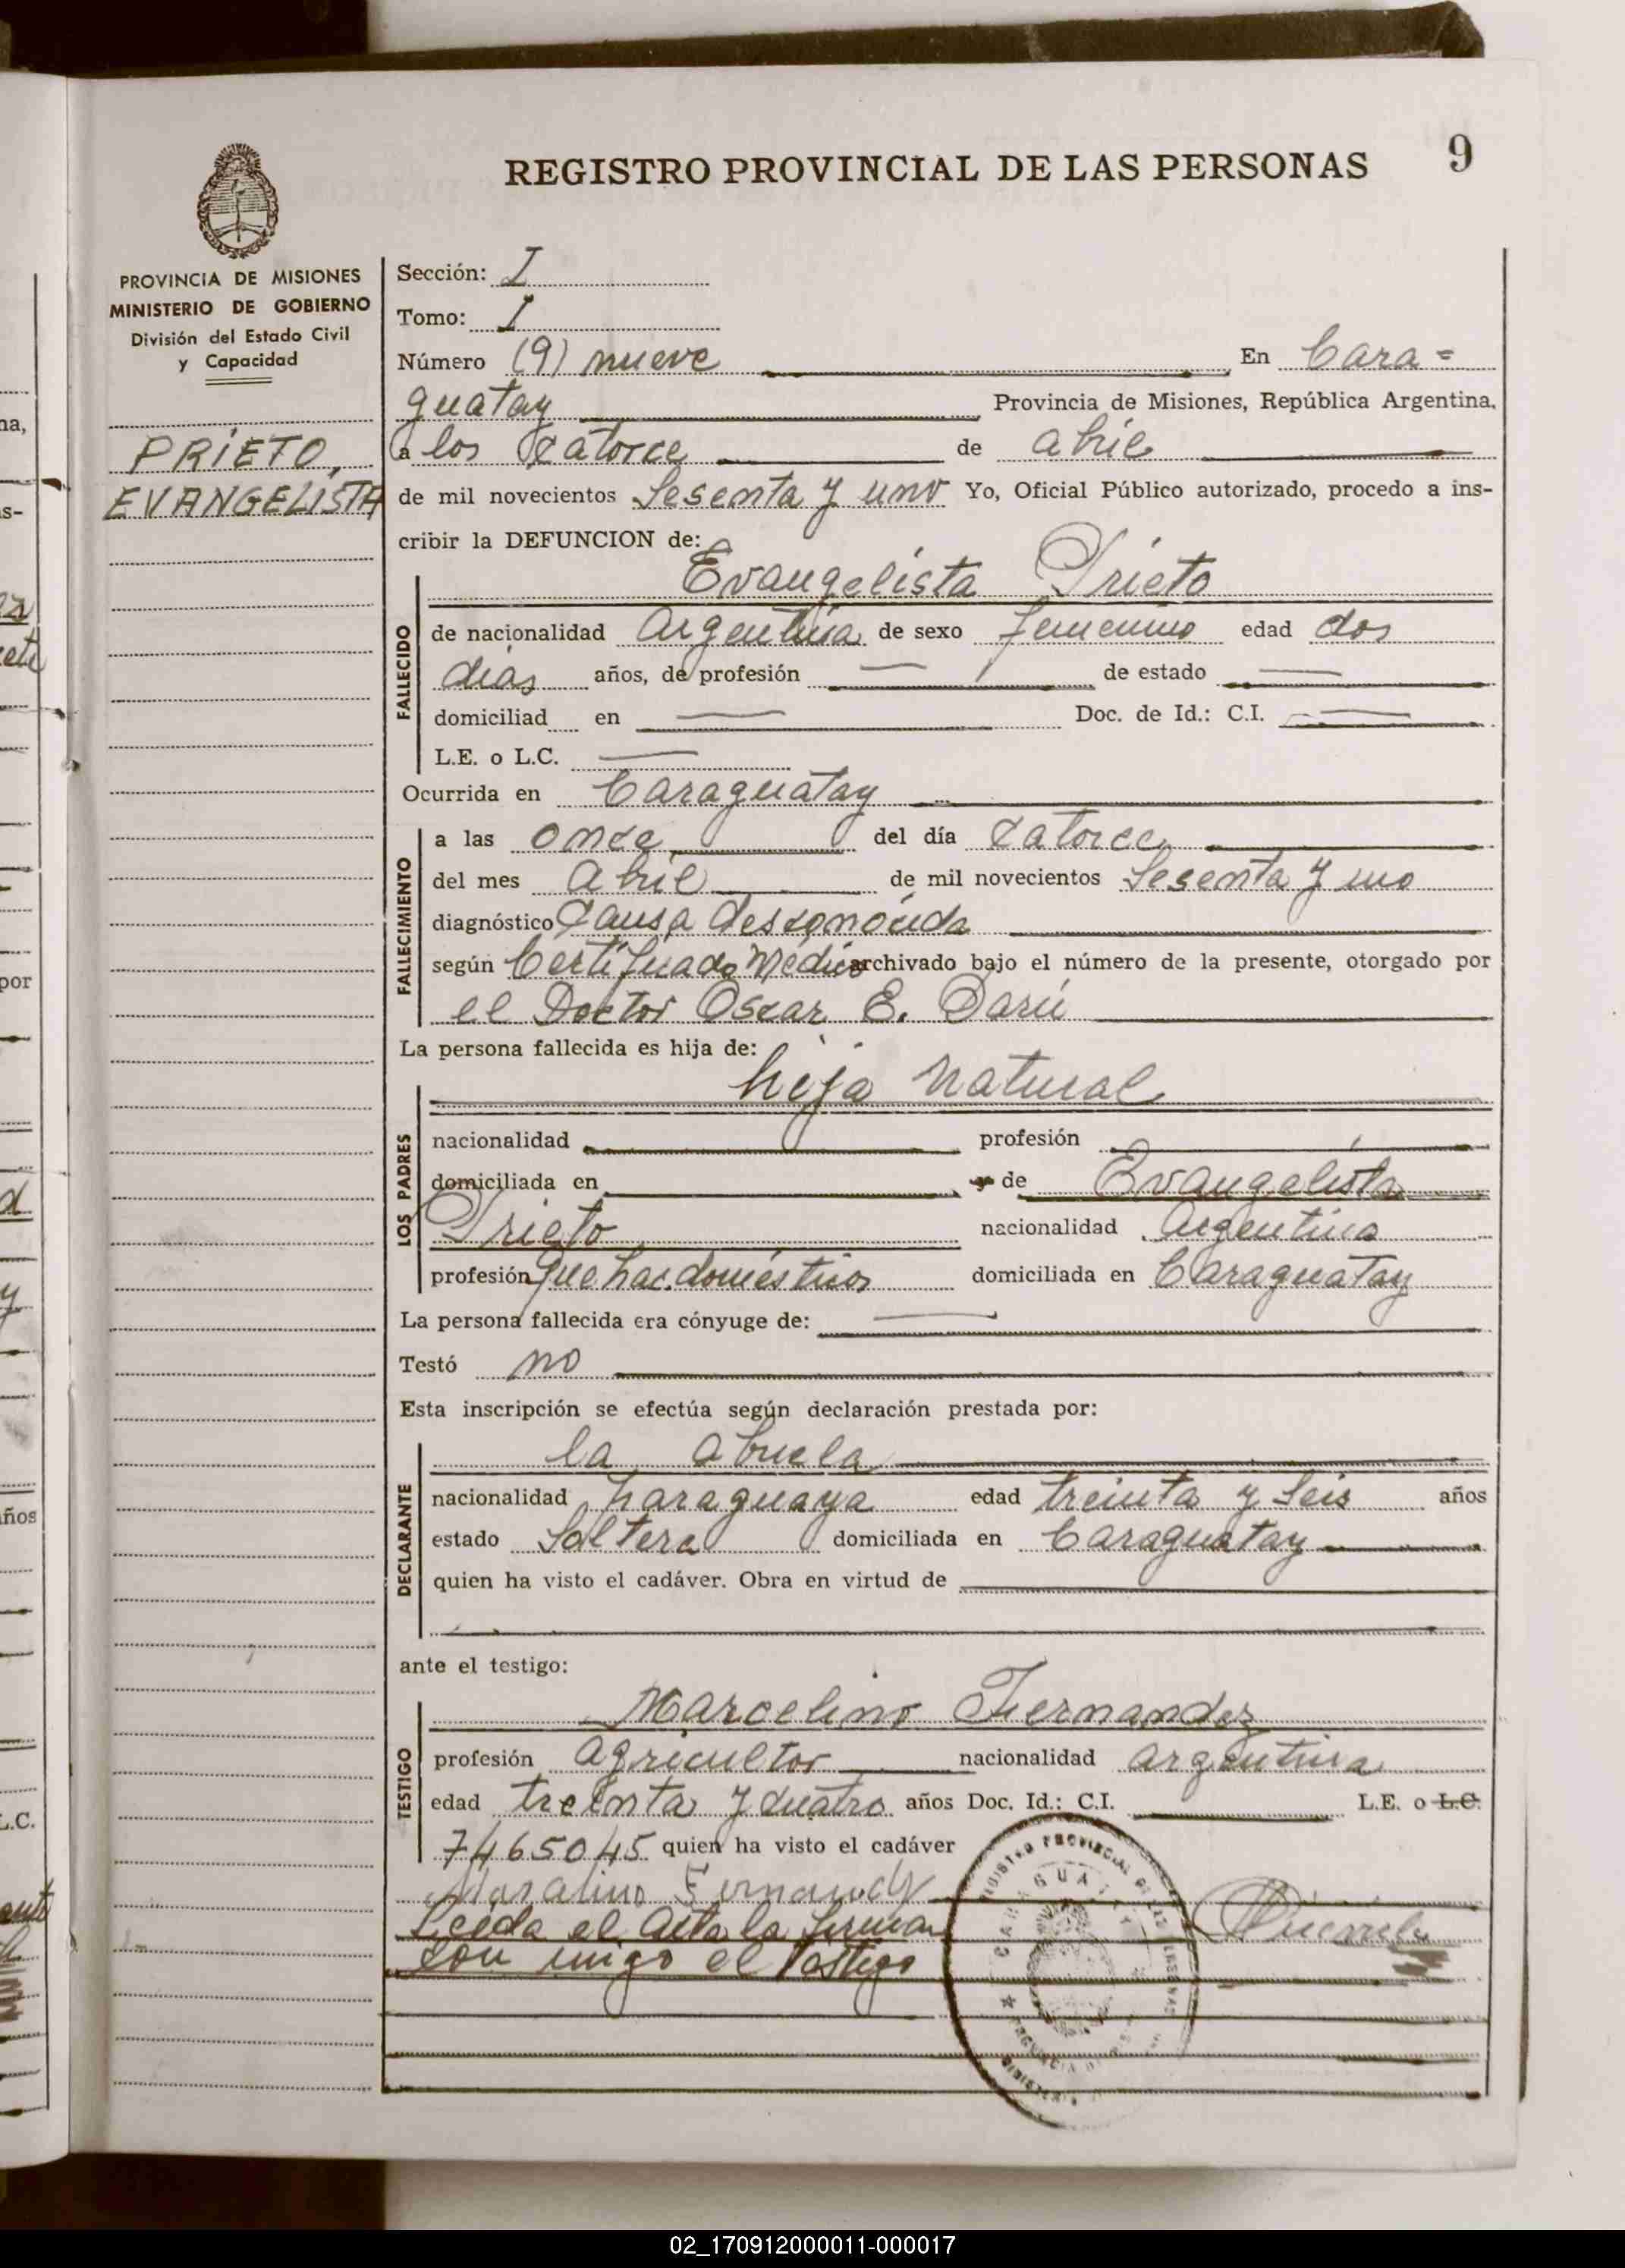 REGISTRO PROVINCIAL DE LAS PERSONAS 9
PROVINCIA DE MISIONES
MINISTERIO DE GOBIERNO
División del Estado Civil
y Capacidad
PRIETO,
EVANGELISTA
Sección: I
Tomo: I
Número (9) nueve En Cara=
guatay Provincia de Misiones, República Argentina,
a los catorce de abril
de mil novecientos Sesenta y uno Yo, Oficial Público autorizado, procedo a ins-
cribir la DEFUNCION de:
Evangelista Prieto
FALLECIDO
de nacionalidad Argentina de sexo femenino edad dos
dias años, de profesión — de estado —
domiciliad en — Doc. de Id.: C.I. —
L.E. o L.C. —
Ocurrida en Caraguatay
FALLECIMIENTO
a las once del día catorce
del mes abril de mil novecientos Sesenta y uno
diagnóstico Causa desconócida
según Certificado Médico archivado bajo el número de la presente, otorgado por
el Doctor Oscar E. Darú
La persona fallecida es hija de:
hija natural
LOS PADRES
nacionalidad profesión
domiciliada en y de Evangelista
Prieto nacionalidad Argentina
profesión Quehac. domésticos domiciliada en Caraguatay
La persona fallecida era cónyuge de: —
Testó no
Esta inscripción se efectúa según declaración prestada por:
la abuela
DECLARANTE
nacionalidad paraguaya edad treinta y seis años
estado Soltera domiciliada en Caraguatay
quien ha visto el cadáver. Obra en virtud de
ante el testigo:
Marcelino Fernandez
TESTIGO
profesión agricultor nacionalidad argentina
edad treinta y cuatro años Doc. Id.: C.I. L.E. o L.C.
7465045 quien ha visto el cadáver
Leida el acta la firman
con migo el testigo
02_170912000011-000017